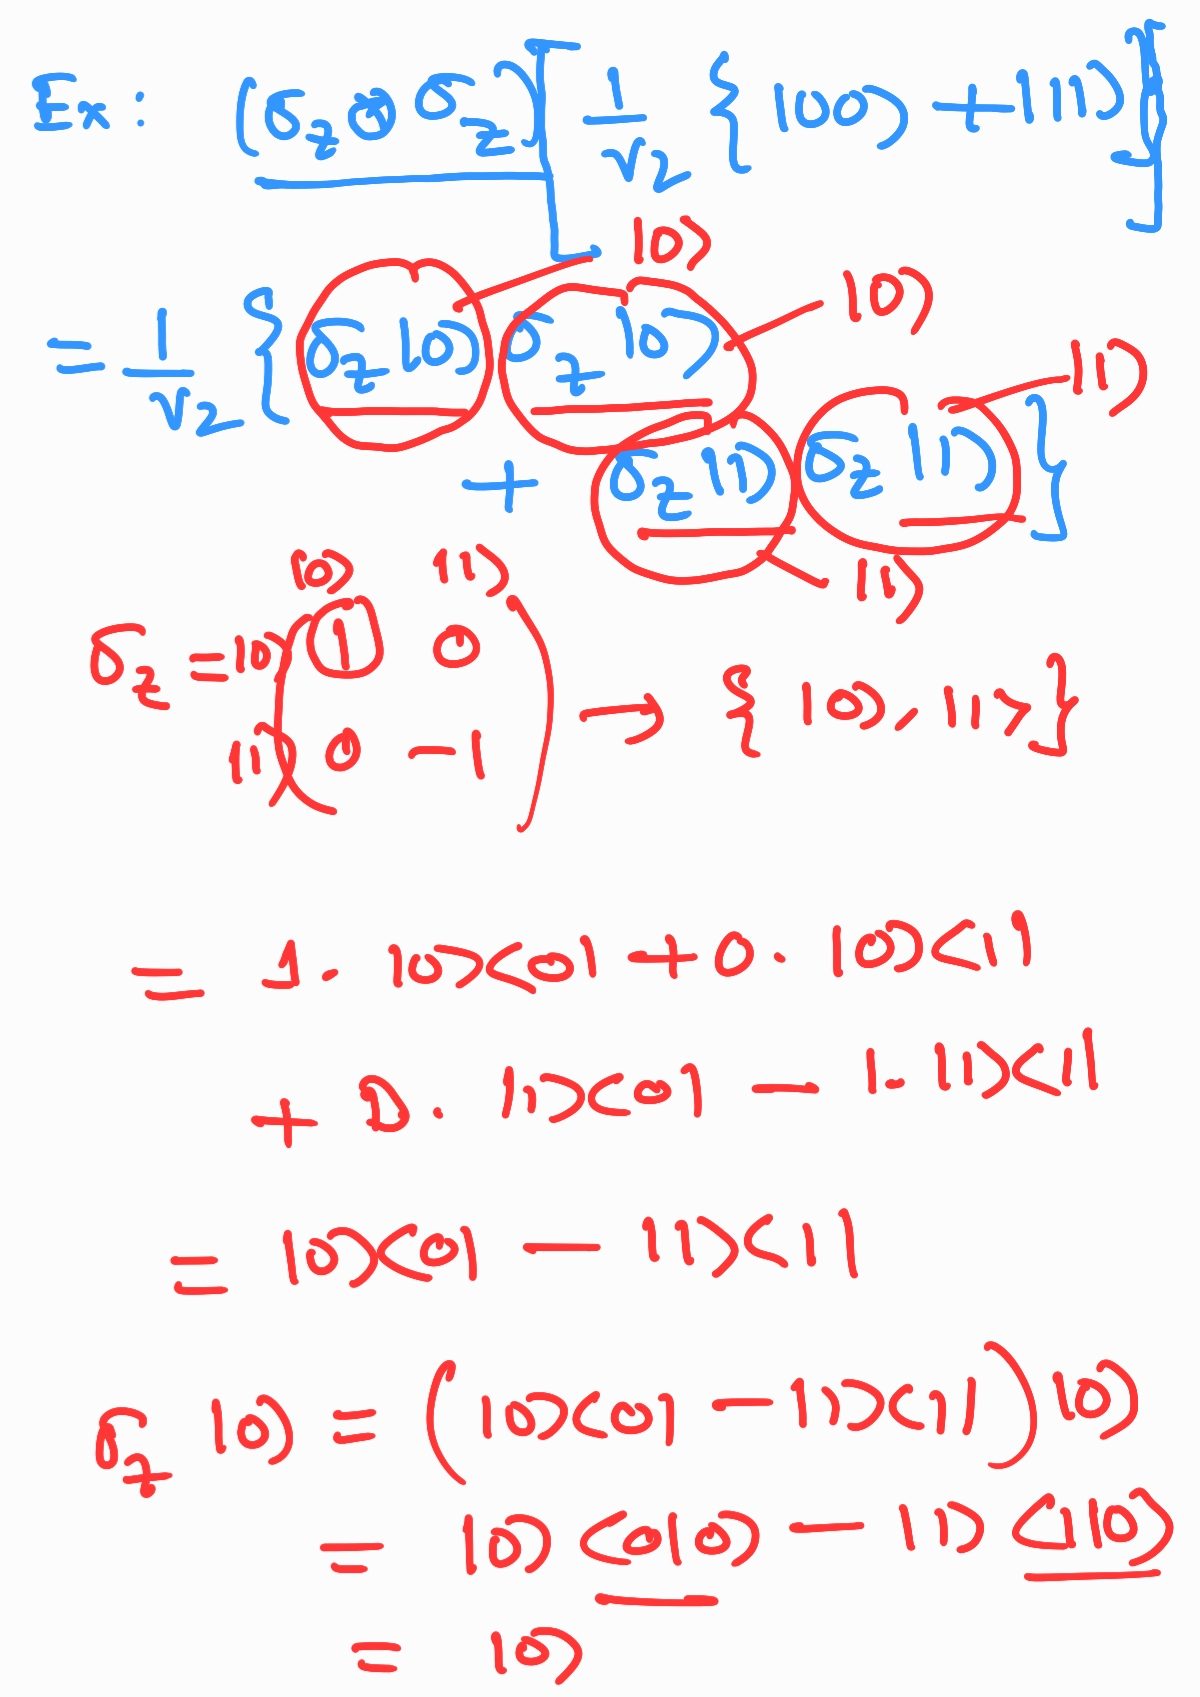 Ex: (σ_z ⊗ σ_z) [ 1/√2 { |00⟩ + |11⟩ } ]
|0⟩
= 1/√2 { σ_z |0⟩ σ_z |0⟩ |0⟩
+ σ_z |1⟩ σ_z |1⟩ } |1⟩
|1⟩
|0⟩ |1⟩
σ_z = |0⟩ ( 1 0
|1⟩ 0 -1 ) → { |0⟩, |1⟩ }
= 1. |0⟩⟨0| + 0. |0⟩⟨1|
+ 0. |1⟩⟨0| - 1. |1⟩⟨1|
= |0⟩⟨0| - |1⟩⟨1|
σ_z |0⟩ = ( |0⟩⟨0| - |1⟩⟨1| ) |0⟩
= |0⟩ ⟨0|0⟩ - |1⟩ ⟨1|0⟩
= |0⟩